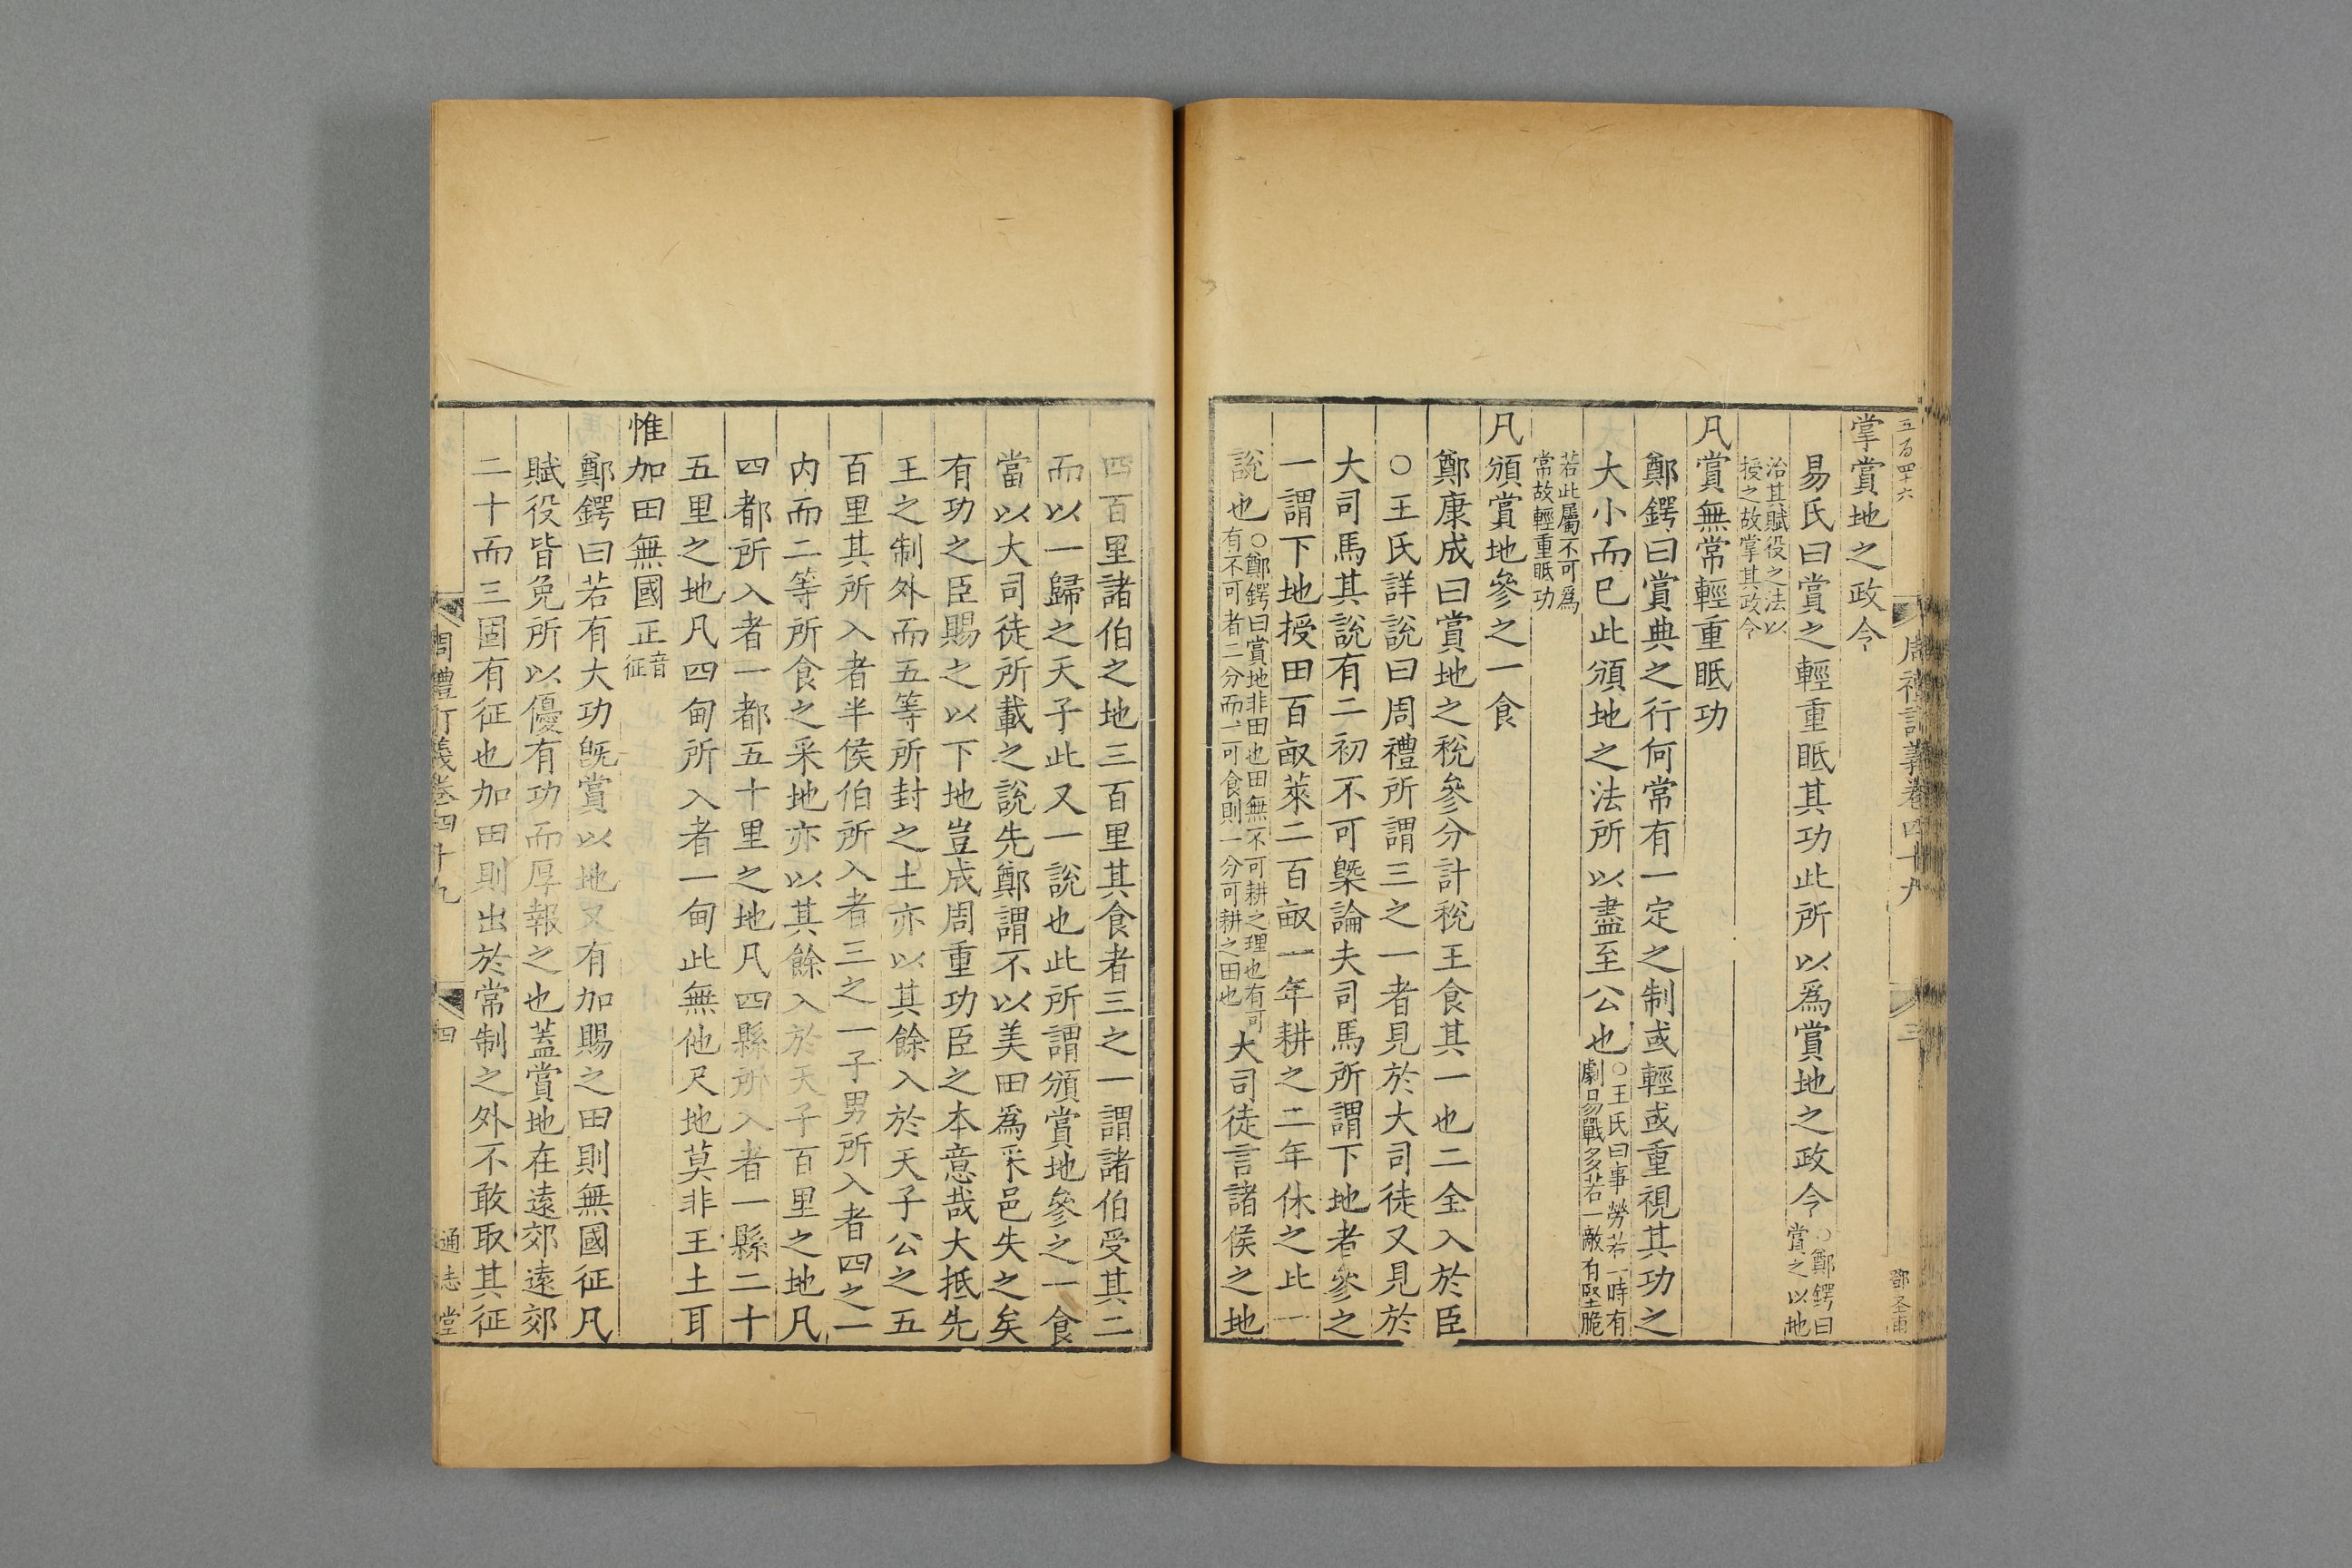 五百四十六
周禮訂義卷四十九
三
掌賞地之政令
易氏曰賞之輕重眡其功此所以爲賞地之政令○鄭鍔曰
賞之以地
治其賦役之法以
授之故掌其政令
凡賞無常輕重眡功
鄭鍔曰賞典之行何常有一定之制或輕或重視其功之
大小而已此頒地之法所以盡至公也○王氏曰事勞若一時有
劇易戰多若一敵有堅脆
若此屬不可爲
常故輕重眡功
凡頒賞地參之一食
鄭康成曰賞地之稅參分計稅王食其一也二全入於臣
○王氏詳說曰周禮所謂三之一者見於大司徒又見於
大司馬其說有二初不可槩論夫司馬所謂下地者參之
一謂下地授田百畝萊二百畝一年耕之二年休之此一
說也○鄭鍔曰賞地非田也田無不可耕之理也有可
有不可者二分而一可食則一分可耕之田也
大司徒言諸侯之地
四百里諸伯之地三百里其食者三之一謂諸伯受其二
而以一歸之天子此又一說也此所謂頒賞地參之一食
當以大司徒所載之說先鄭謂不以美田爲采邑失之矣
有功之臣賜之以下地豈成周重功臣之本意哉大抵先
王之制外而五等所封之土亦以其餘入於天子公之五
百里其所入者半侯伯所入者三之一子男所入者四之一
内而二等所食之采地亦以其餘入於天子百里之地凡
四都所入者一都五十里之地凡四縣所入者一縣二十
五里之地凡四甸所入者一甸此無他尺地莫非王土耳
惟加田無國正音
征
鄭鍔曰若有大功旣賞以地又有加賜之田則無國征凡
賦役皆免所以優有功而厚報之也蓋賞地在遠郊遠郊
二十而三固有征也加田則出於常制之外不敢取其征
周禮訂義卷四十九
四
通志堂